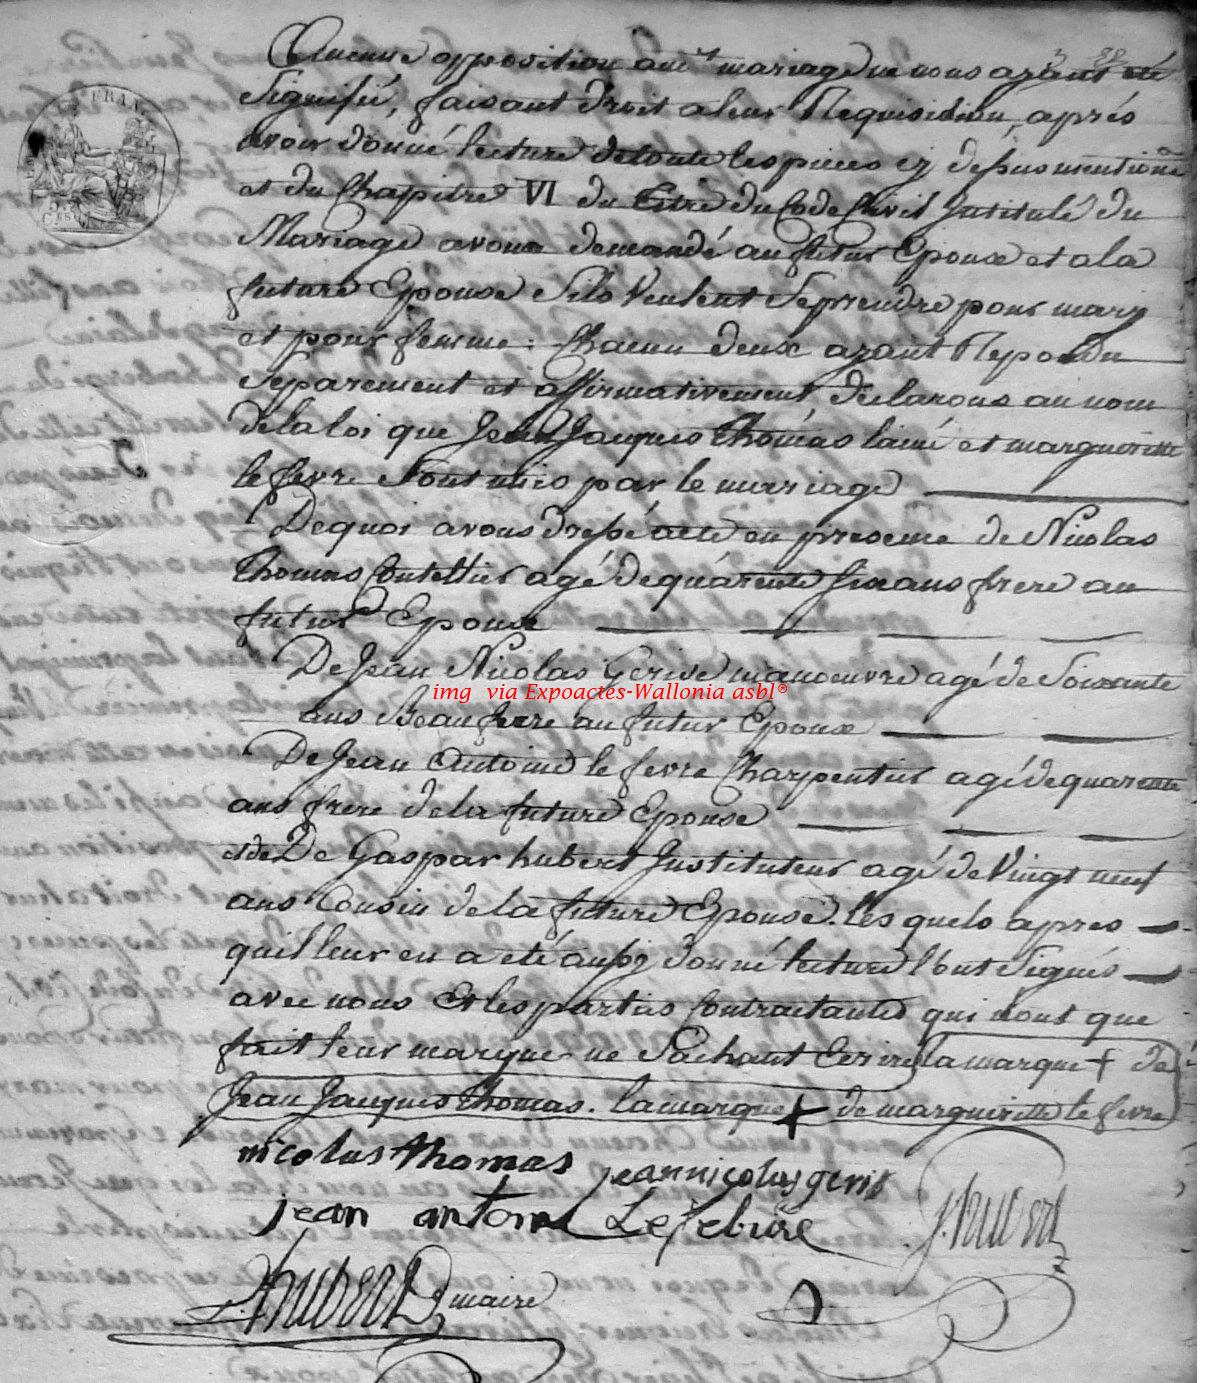 Aucune opposition audt mariage ne nous ayant été
Signifié, faisant droit a leur Requisition, après
avoir donné lecture de toute les pieces cy dessus mentione
et du Chapitre VI du titre du Code Civil Intitulé du
Mariage avons demandé au futur Epoux et a la
future Epouse S'ils veulent Se prendre pour mary
et pour femme : Chacun deux ayant Repondu
Separement et affirmativement declarons au nom
de la loi que Jean Jacques Thomas lainé et margueritte
le fevre Sont unis par le mariage
De quoi avons dressé acte en presence de Nicolas
Thomas Coutellier agé de quarente six ans frere au
futur Epoux
De Jean Nicolas Gerise manoeuvre agé de Soixante
ans Beau frere au futur Epoux
img via Expoactes-Wallonia asbl®
De Jean Antoine le fevre Charpentier agé de quarente
ans frere de la future Epouse
et de De Gaspar hubert Instituteur agé de Vingt neuf
ans Cousin de la future Epouse. les quels apres
quil leur en a été aussy donné lecture l'ont Signés
avec nous Et les parties Contractantes qui nont que
fait leur marque ne Sachant Ecrire la marque + de
Jean Jacques Thomas. la marque + de margueritte le fevre
nicolas thomas jean nicolas geris
jean antoine Lefebvre J. hubert
hubert maire